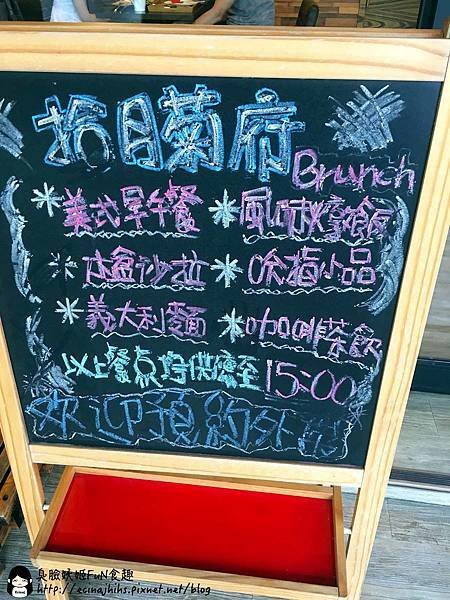 拾月菊府
Brunch
*美式早午餐 *風味燉飯
*太盒沙拉 *吮指小品
*義大利麵 *咖啡茶飲
以上餐点均供應至15:00
歡迎預約外
臭臉妖姬FuN食趣
http://ecinajhihs.pixnet.net/blog